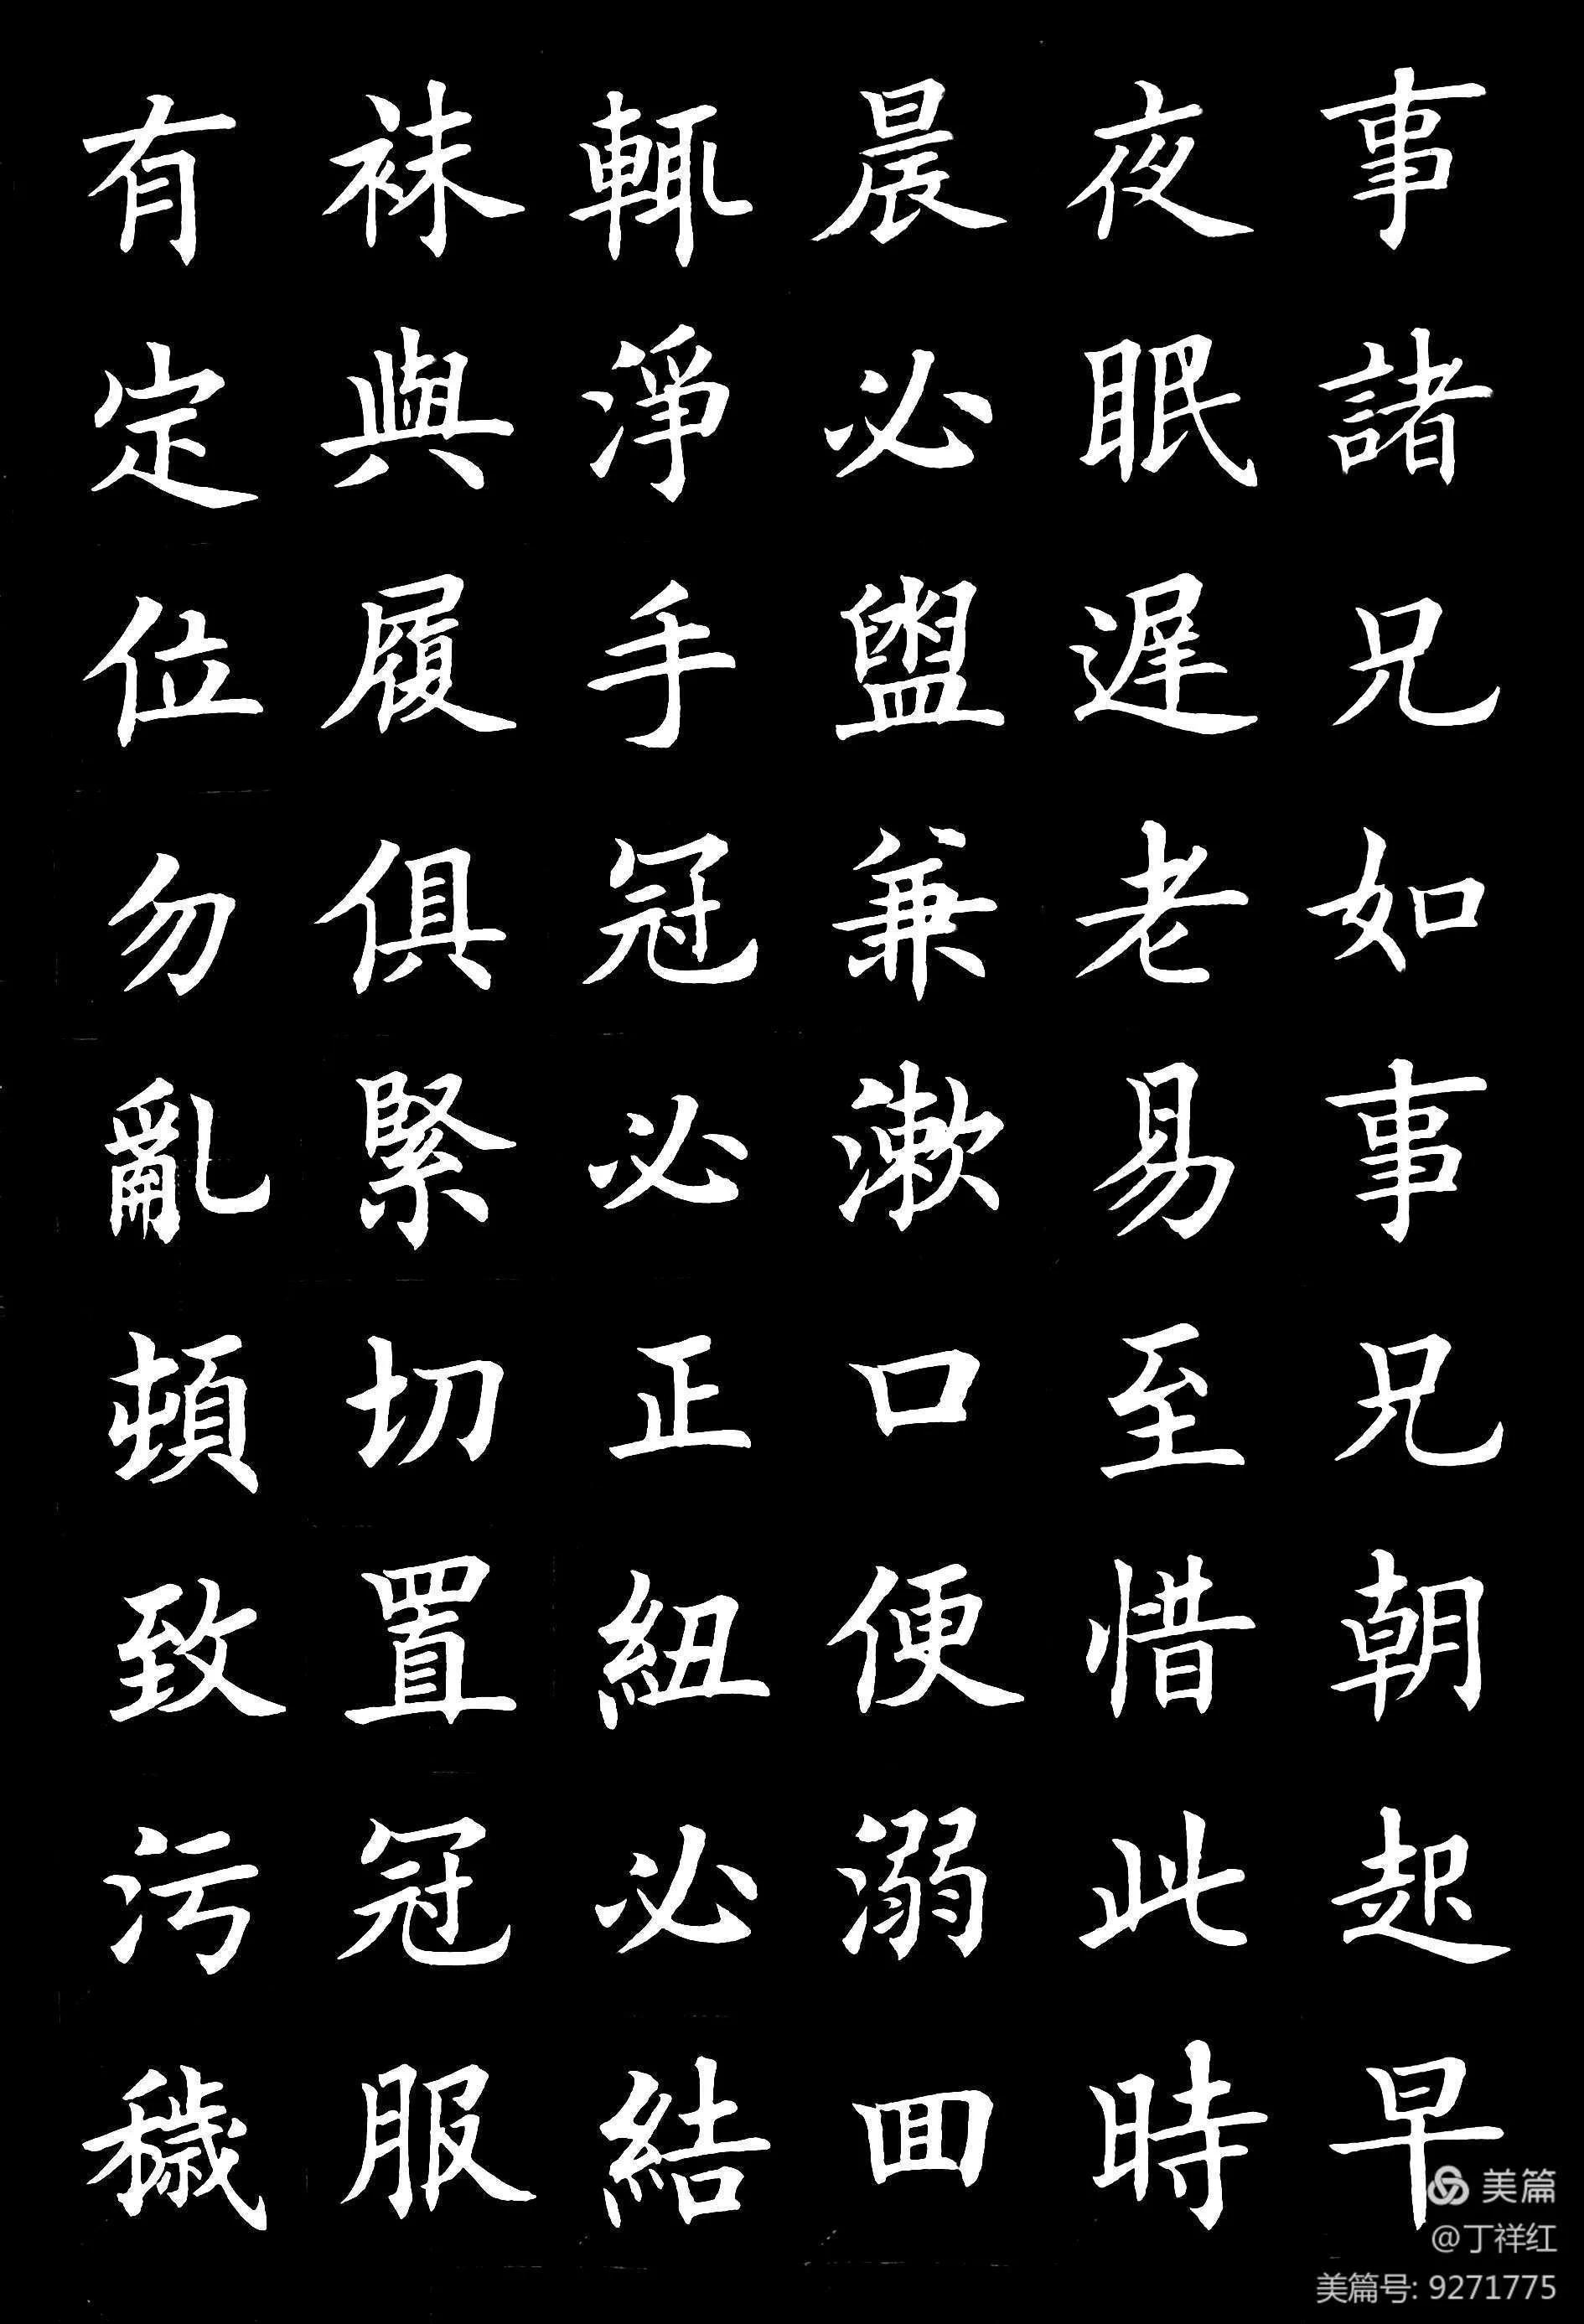 事諸兄如事兄朝起早
夜眠遲老易至惜此時
晨必盥兼漱口便溺回
輒淨手冠必正紐必結
袜與履俱緊切置冠服
有定位勿亂頓致污穢
美篇
@丁祥红
美篇号: 9271775